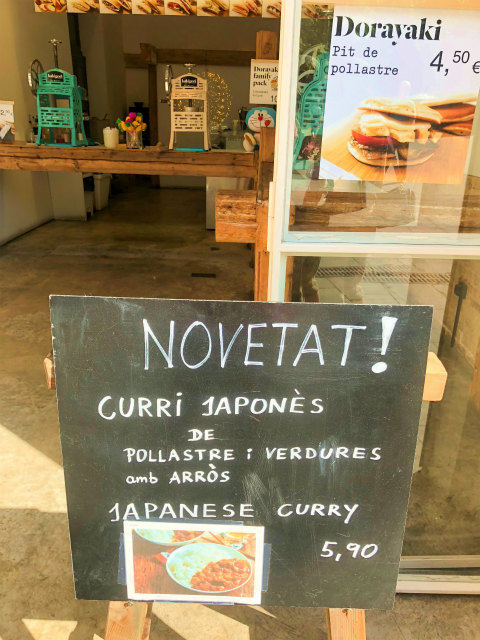 Dorayaki
Pit de
pollastre
4,50€
Dorayaki
family
pack
NOVETAT!
CURRi JAPONÈS
DE
POLLASTRE i VERDURES
amb ARRÒS
JAPANESE CURRY
5,90